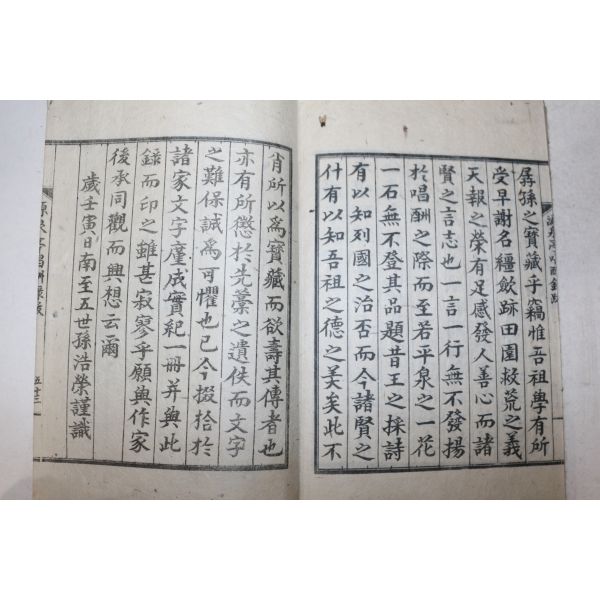 孱孫之寶藏乎竊惟吾祖學有所
受早謝名韁歛跡田園救荒之義
天報之榮有足感發人善心而諸
賢之言志也一言一行無不發揚
於唱酬之際而至若平泉之一花
一石無不登其品題昔王之採詩
有以知列國之治否而今諸賢之
什有以知吾祖之德之美矣此不
肖所以爲寶藏而欲壽其傳者也
亦有所懲於先藁之遺佚而文字
之難保誠爲可懼也已今掇拾於
諸家文字厪成實紀一冊并與此
錄而印之雖甚寂寥乎願與作家
後承同觀而興想云爾
歲壬寅日南至五世孫浩榮謹識